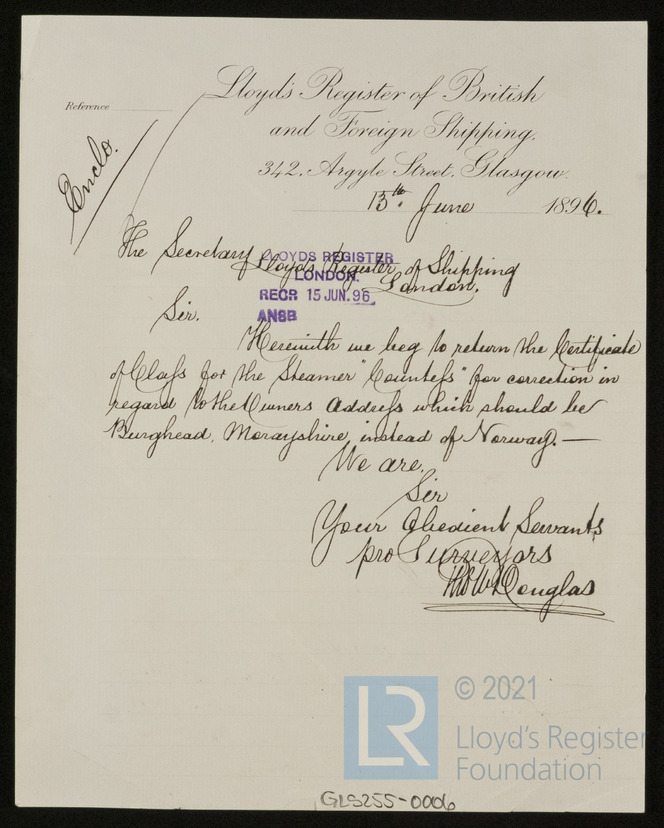 Lloyd's Register of British
and Foreign Shipping.
342, Argyle Street, Glasgow.
Reference
Enclo.
13th June 1896.
The Secretary Lloyds Register of Shipping
London.
LLOYDS REGISTER
LONDON.
RECR 15 JUN. 96
ANSB
Sir.
Herewith we beg to return the Certificate
of Class for the Steamer "Countess" for correction in
regard to the Owners Address which should be
Burghead, Morayshire, instead of Norway.—
We are,
Sir
Your Obedient Servants
pro Surveyors
Douglas
© 2021
LR
Lloyd's Register
Foundation
GLS255-0006